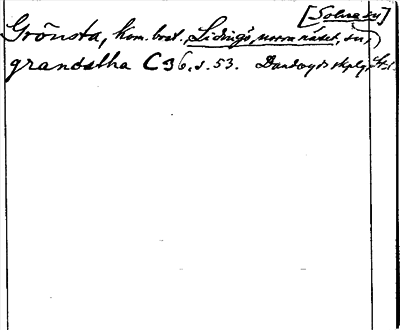 [Solna sn]
Grönsta, kom. bost., Lidingö, norra näset, sn,
grandstha C 36, s. 53. Danderyds skplg, St. l.